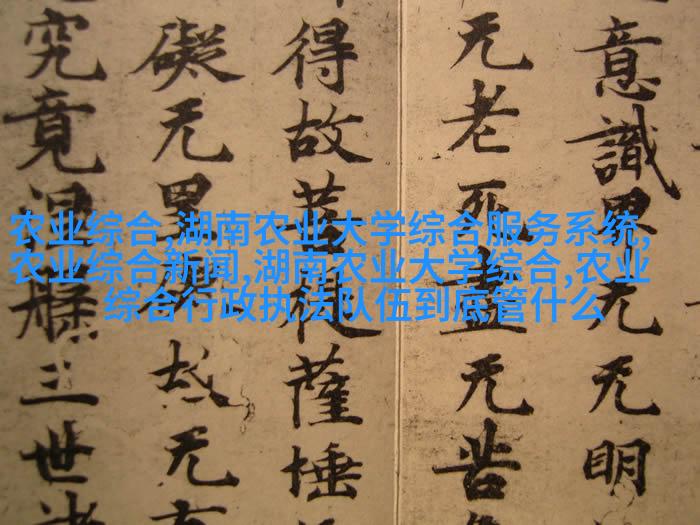 农业综合,湖南农业大学综合服务系统,
农业综合新闻,湖南农业大学综合,农业
综合行政执法队伍到底管什么
意識界无无明
无老死盡无苦
得故菩提薩埵
礙无罣礙故无有
究竟涅槃三世諸